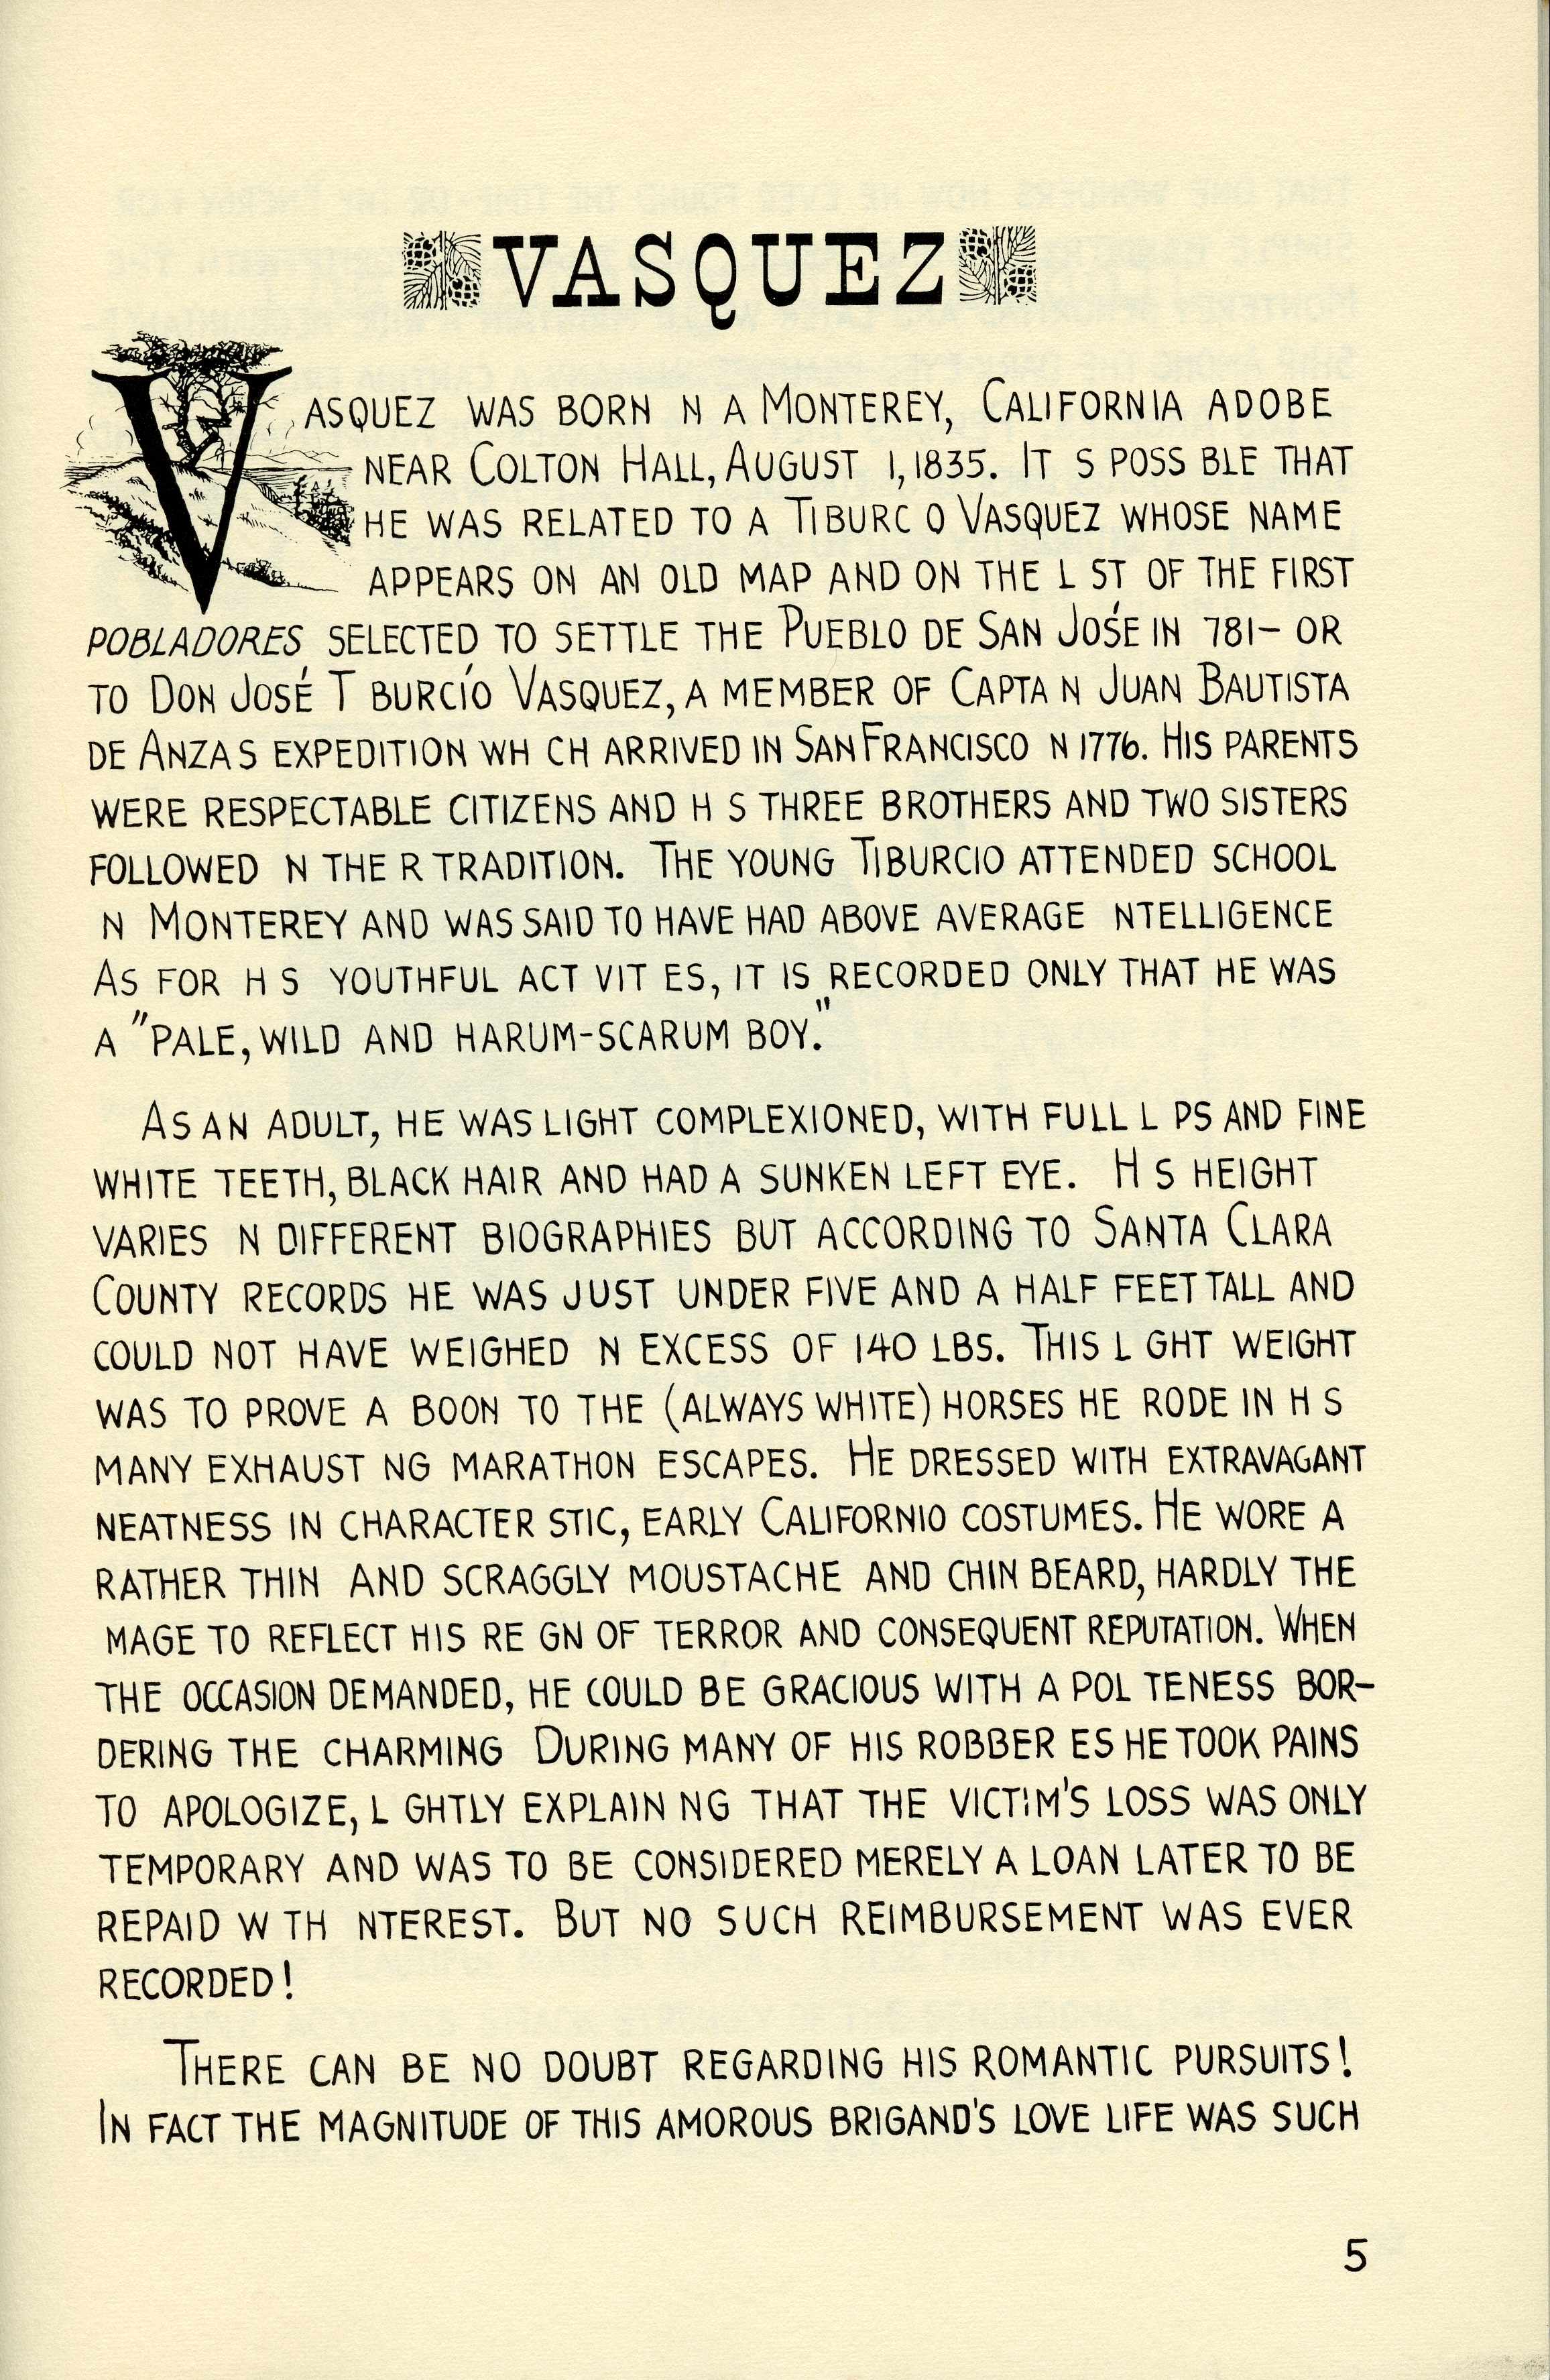 VASQUEZ
VASQUEZ WAS BORN N A MONTEREY, CALIFORNIA ADOBE
NEAR COLTON HALL, AUGUST 1, 1835. IT S POSS BLE THAT
HE WAS RELATED TO A TIBURC O VASQUEZ WHOSE NAME
APPEARS ON AN OLD MAP AND ON THE L ST OF THE FIRST
POBLADORES SELECTED TO SETTLE THE PUEBLO DE SAN JOSÉ IN 781— OR
TO DON JOSÉ T BURCÍO VASQUEZ, A MEMBER OF CAPTA N JUAN BAUTISTA
DE ANZA S EXPEDITION WH CH ARRIVED IN SAN FRANCISCO N 1776. HIS PARENTS
WERE RESPECTABLE CITIZENS AND H S THREE BROTHERS AND TWO SISTERS
FOLLOWED N THE R TRADITION. THE YOUNG TIBURCIO ATTENDED SCHOOL
N MONTEREY AND WAS SAID TO HAVE HAD ABOVE AVERAGE NTELLIGENCE
AS FOR H S YOUTHFUL ACT VIT ES, IT IS RECORDED ONLY THAT HE WAS
A "PALE, WILD AND HARUM-SCARUM BOY."
AS AN ADULT, HE WAS LIGHT COMPLEXIONED, WITH FULL L PS AND FINE
WHITE TEETH, BLACK HAIR AND HAD A SUNKEN LEFT EYE. H S HEIGHT
VARIES N DIFFERENT BIOGRAPHIES BUT ACCORDING TO SANTA CLARA
COUNTY RECORDS HE WAS JUST UNDER FIVE AND A HALF FEET TALL AND
COULD NOT HAVE WEIGHED N EXCESS OF 140 LBS. THIS L GHT WEIGHT
WAS TO PROVE A BOON TO THE (ALWAYS WHITE) HORSES HE RODE IN H S
MANY EXHAUST NG MARATHON ESCAPES. HE DRESSED WITH EXTRAVAGANT
NEATNESS IN CHARACTER STIC, EARLY CALIFORNIO COSTUMES. HE WORE A
RATHER THIN AND SCRAGGLY MOUSTACHE AND CHIN BEARD, HARDLY THE
MAGE TO REFLECT HIS RE GN OF TERROR AND CONSEQUENT REPUTATION. WHEN
THE OCCASION DEMANDED, HE COULD BE GRACIOUS WITH A POL TENESS BOR-
DERING THE CHARMING DURING MANY OF HIS ROBBER ES HE TOOK PAINS
TO APOLOGIZE, L GHTLY EXPLAIN NG THAT THE VICTIM'S LOSS WAS ONLY
TEMPORARY AND WAS TO BE CONSIDERED MERELY A LOAN LATER TO BE
REPAID W TH NTEREST. BUT NO SUCH REIMBURSEMENT WAS EVER
RECORDED!
THERE CAN BE NO DOUBT REGARDING HIS ROMANTIC PURSUITS!
IN FACT THE MAGNITUDE OF THIS AMOROUS BRIGAND'S LOVE LIFE WAS SUCH
5